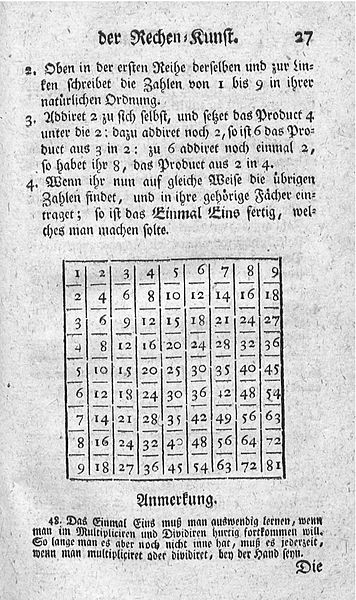 der Rechen-Kunst. 27
2. Oben in der ersten Reihe derselben und zur Lin-
ken schreibet die Zahlen von 1 bis 9 in ihrer
natürlichen Ordnung.
3. Addiret 2 zu sich selbst, und setzet das Product 4
unter die 2: dazu addiret noch 2, so ist 6 das Pro-
duct aus 3 in 2: zu 6 addiret noch einmal 2,
so habet ihr 8, das Product aus 2 in 4.
4. Wenn ihr nun auf gleiche Weise die übrigen
Zahlen findet, und in ihre gehörige Fächer ein-
traget; so ist das Einmal Eins fertig, wel-
ches man machen solte.
1 2 3 4 5 6 7 8 9
2 4 6 8 10 12 14 16 18
3 6 9 12 15 18 21 24 27
4 8 12 16 20 24 28 32 36
5 10 15 20 25 30 35 40 45
6 12 18 24 30 36 42 48 54
7 14 21 28 35 42 49 56 63
8 16 24 32 40 48 56 64 72
9 18 27 36 45 54 63 72 81
Anmerkung.
48. Das Einmal Eins muß man auswendig lernen, wenn
man im Multipliciren und Dividiren hurtig fortkommen will.
So lange man es aber noch nicht inne hat, muß es jederzeit,
wenn man multipliciret oder dividiret, bey der Hand seyn.
Die